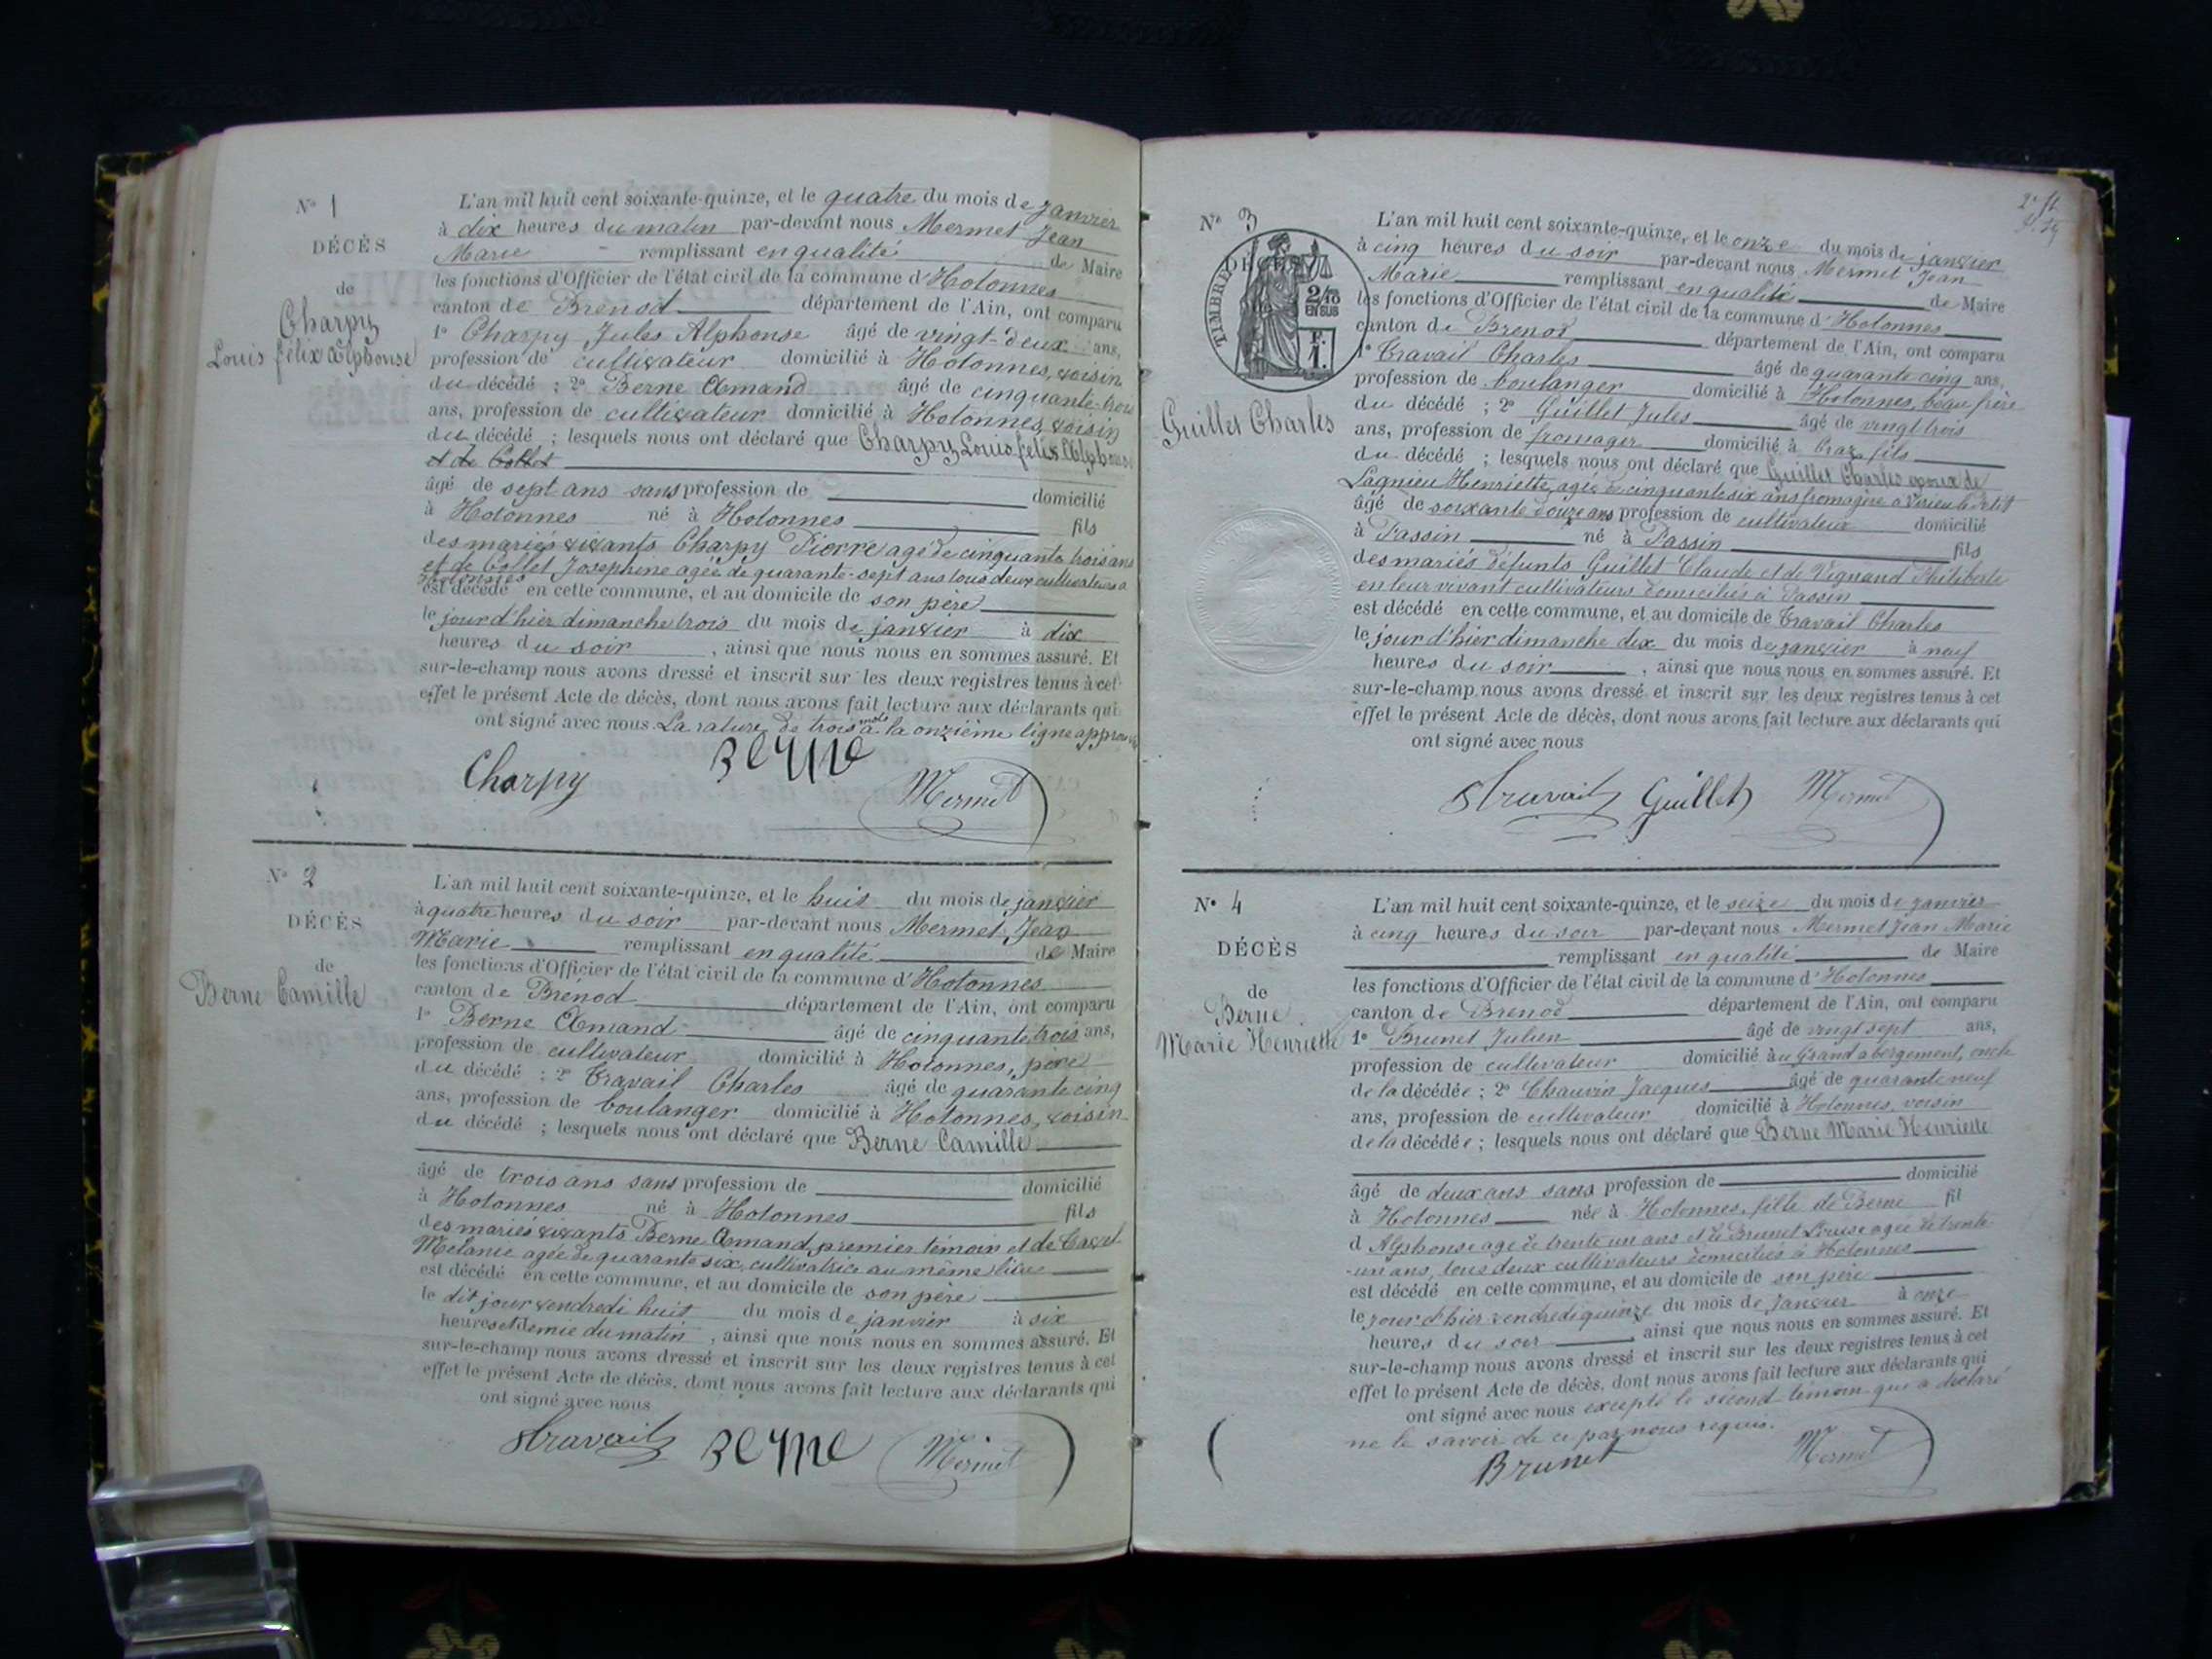 N° 1
DÉCÈS
de
Charpy
Louis félix Alphonse
L'an mil huit cent soixante-quinze, et le quatre du mois de janvier
à dix heures du matin par-devant nous Mermet Jean
Marie remplissant en qualité de Maire
les fonctions d'Officier de l'état civil de la commune d'Hotonnes
canton de Brénod département de l'Ain, ont comparu
1° Charpy Jules Alphonse âgé de vingt-deux ans,
profession de cultivateur domicilié à Hotonnes, voisin
du décédé ; 2° Berne Amand âgé de cinquante-trois
ans, profession de cultivateur domicilié à Hotonnes, voisin
du décédé ; lesquels nous ont déclaré que Charpy Louis félix Alphonse
et de Collet
âgé de sept ans sans profession de domicilié
à Hotonnes né à Hotonnes fils
des mariés vivants Charpy Pierre agé de cinquante trois ans
et de Collet Josephine agée de quarante-sept ans tous deux cultivateurs a
Hotonnes
est décédé en cette commune, et au domicile de son père
le jour d'hier dimanche trois du mois de janvier à dix
heures du soir, ainsi que nous nous en sommes assuré. Et
sur-le-champ nous avons dressé et inscrit sur les deux registres tenus à cet
effet le présent Acte de décès, dont nous avons fait lecture aux déclarants qui
ont signé avec nous La rature de trois mots à la onzième ligne approuvée
Charpy Berne Mermet
N° 2
DÉCÈS
de
Berne Camille
L'an mil huit cent soixante-quinze, et le huit du mois de janvier
à quatre heures du soir par-devant nous Mermet Jean
Marie remplissant en qualité de Maire
les fonctions d'Officier de l'état civil de la commune d'Hotonnes
canton de Brénod département de l'Ain, ont comparu
1° Berne Amand âgé de cinquante trois ans,
profession de cultivateur domicilié à Hotonnes, père
du décédé ; 2° Travail Charles âgé de quarante cinq
ans, profession de boulanger domicilié à Hotonnes, voisin
du décédé ; lesquels nous ont déclaré que Berne Camille
âgé de trois ans sans profession de domicilié
à Hotonnes né à Hotonnes fils
des mariés vivants Berne Amand, premier témoin et de
Mélanie agée de quarante six, cultivatrice au même lieu
est décédé en cette commune, et au domicile de son père
le dit jour vendredi huit du mois de janvier à six
heures et demie du matin, ainsi que nous nous en sommes assuré. Et
sur-le-champ nous avons dressé et inscrit sur les deux registres tenus à cet
effet le présent Acte de décès, dont nous avons fait lecture aux déclarants qui
ont signé avec nous
Travail Berne Mermet
2e ft
N° 3
DÉCÈS
TIMBRE
2/10
EN SUS
F.
1.
Guillet Charles
L'an mil huit cent soixante-quinze, et le onze du mois de janvier
à cinq heures du soir par-devant nous Mermet Jean
Marie remplissant en qualité de Maire
les fonctions d'Officier de l'état civil de la commune d'Hotonnes
canton de Brenod département de l'Ain, ont comparu
1° Travail Charles âgé de quarante cinq ans,
profession de boulanger domicilié à Hotonnes, beau frère
du décédé ; 2° Guillet Jules âgé de vingt trois
ans, profession de fromager domicilié à Craz, fils
du décédé ; lesquels nous ont déclaré que Guillet Charles epoux de
Lagnieu Henriette, agée de cinquante six ans fromagère a Virieu le Petit
âgé de soixante douze ans profession de cultivateur domicilié
à Passin né à Passin fils
des mariés défunts Guillet Claude et de Vignand Philiberte
en leur vivant cultivateurs domiciliés à Passin
est décédé en cette commune, et au domicile de Travail Charles
le jour d'hier dimanche dix du mois de janvier à neuf
heures du soir, ainsi que nous nous en sommes assuré. Et
sur-le-champ nous avons dressé et inscrit sur les deux registres tenus à cet
effet le présent Acte de décès, dont nous avons fait lecture aux déclarants qui
ont signé avec nous
Travail Guillet Mermet
N° 4
DÉCÈS
de
Berne
Marie Henriette
L'an mil huit cent soixante-quinze, et le seize du mois de janvier
à cinq heures du soir par-devant nous Mermet Jean Marie
remplissant en qualité de Maire
les fonctions d'Officier de l'état civil de la commune d'Hotonnes
canton de Brenod département de l'Ain, ont comparu
1° Brunet Julien âgé de vingt sept ans,
profession de cultivateur domicilié au Grand abergement, oncle
de la décédée ; 2° Chauvin Jacques âgé de quarante neuf
ans, profession de cultivateur domicilié à Hotonnes, voisin
de la décédée ; lesquels nous ont déclaré que Berne Marie Henriette
âgé de deux ans sans profession de domicilié
à Hotonnes née à Hotonnes, fille de Berne fil
d Alphonse age de trente un ans et de Brunet Louise agée de trente
-un ans, tous deux cultivateurs domiciliés à Hotonnes
est décédé en cette commune, et au domicile de son père
le jour d'hier vendredi quinze du mois de janvier à onze
heures du soir, ainsi que nous nous en sommes assuré. Et
sur-le-champ nous avons dressé et inscrit sur les deux registres tenus à cet
effet le présent Acte de décès, dont nous avons fait lecture aux déclarants qui
ont signé avec nous excepté le second témoin qui a déclaré
ne le savoir de ce par nous requis.
Brunet Mermet